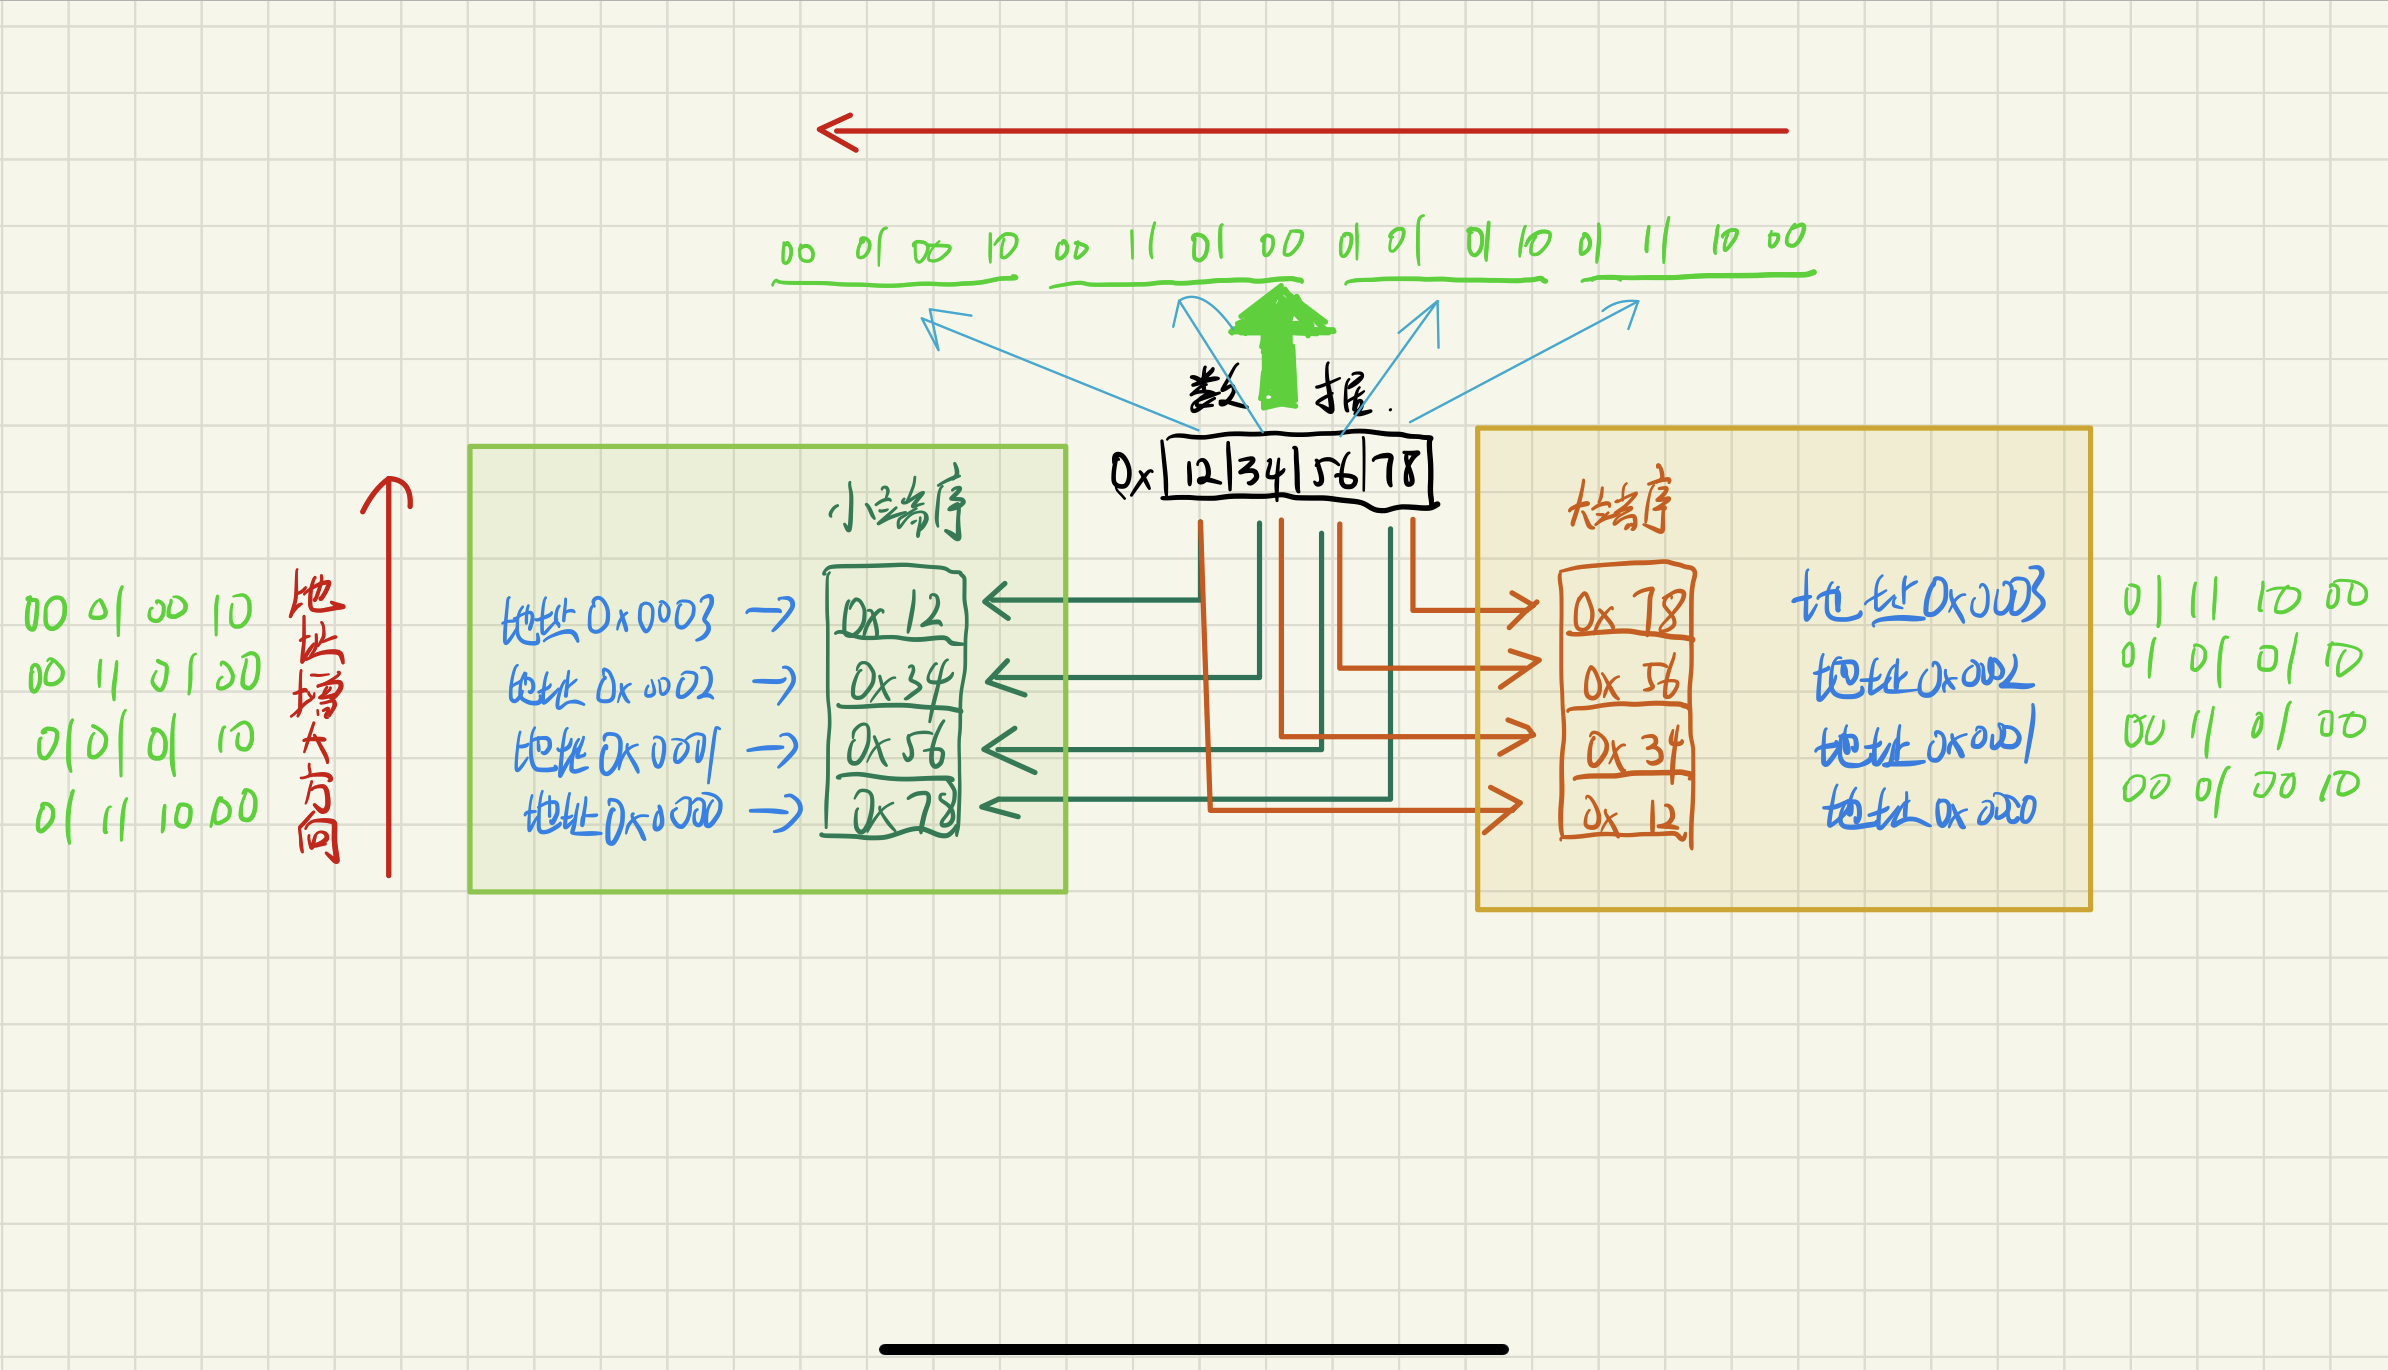 00 01 00 10 00 11 01 00 01 01 01 10 01 11 10 00
数据.
0x 12 34 56 78
地址增大方向
00 01 00 10
00 11 01 00
01 01 01 10
01 11 10 00
小端序
地址0x0003 → 0x 12
地址0x0002 → 0x 34
地址0x0001 → 0x 56
地址0x0000 → 0x 78
大端序
0x 78 地址0x0003
0x 56 地址0x0002
0x 34 地址0x0001
0x 12 地址0x0000
01 11 10 00
01 01 01 10
00 11 01 00
00 01 00 10